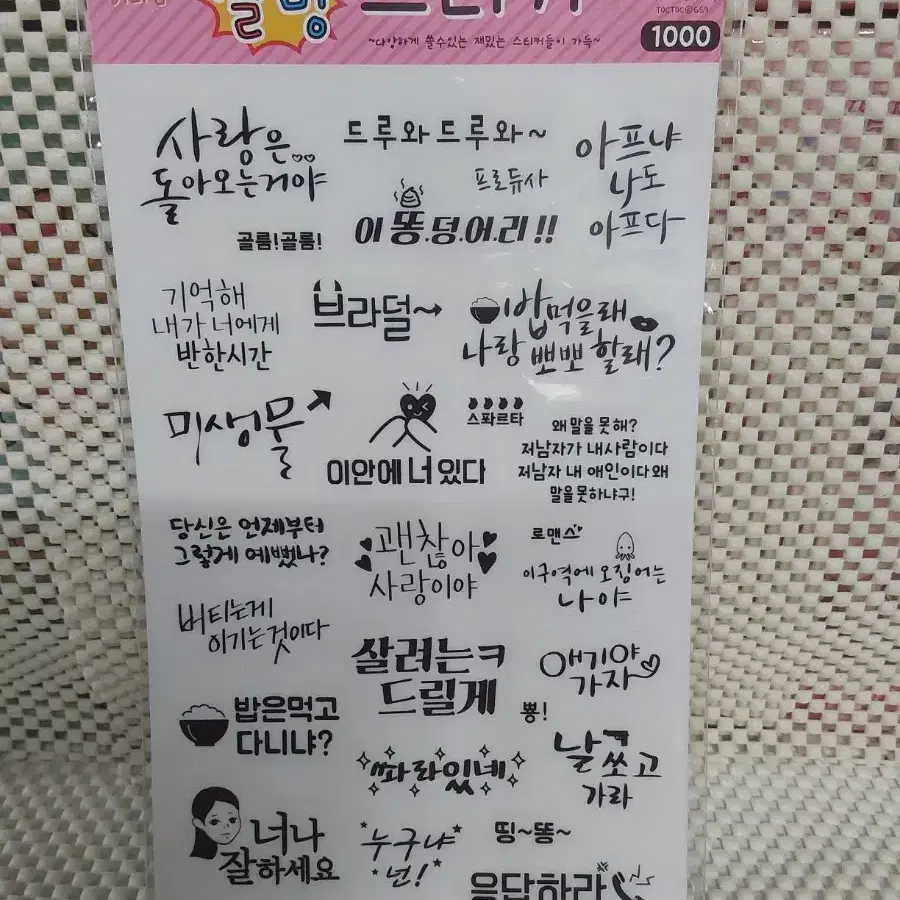 TOCTOC©GS9
1000
~다양하게 쓸수있는 재밌는 스티커들이 가득~
사랑은
돌아오는거야
드루와 드루와~
프로듀사
아프냐
나도
아프다
골룸!골룸!
이 똥.덩.어.리 !!
기억해
내가 너에게
반한시간
브라덜~
밥먹을래
나랑 뽀뽀 할래?
미생물
스퐈르타
이안에 너 있다
왜 말을 못해?
저남자가 내사람이다
저남자 내 애인이다 왜
말을 못하냐구!
당신은 언제부터
그렇게 예뻤나?
괜찮아
사랑이야
로맨스
이구역에 오징어는
나야
버티는게
이기는것이다
살려는ㅋ
드릴게
애기야
가자
뿅!
밥은먹고
다니냐?
쏴라있네
날 쏘고
가라
너나
잘하세요
누구냐
넌!
띵~똥~
응답하라